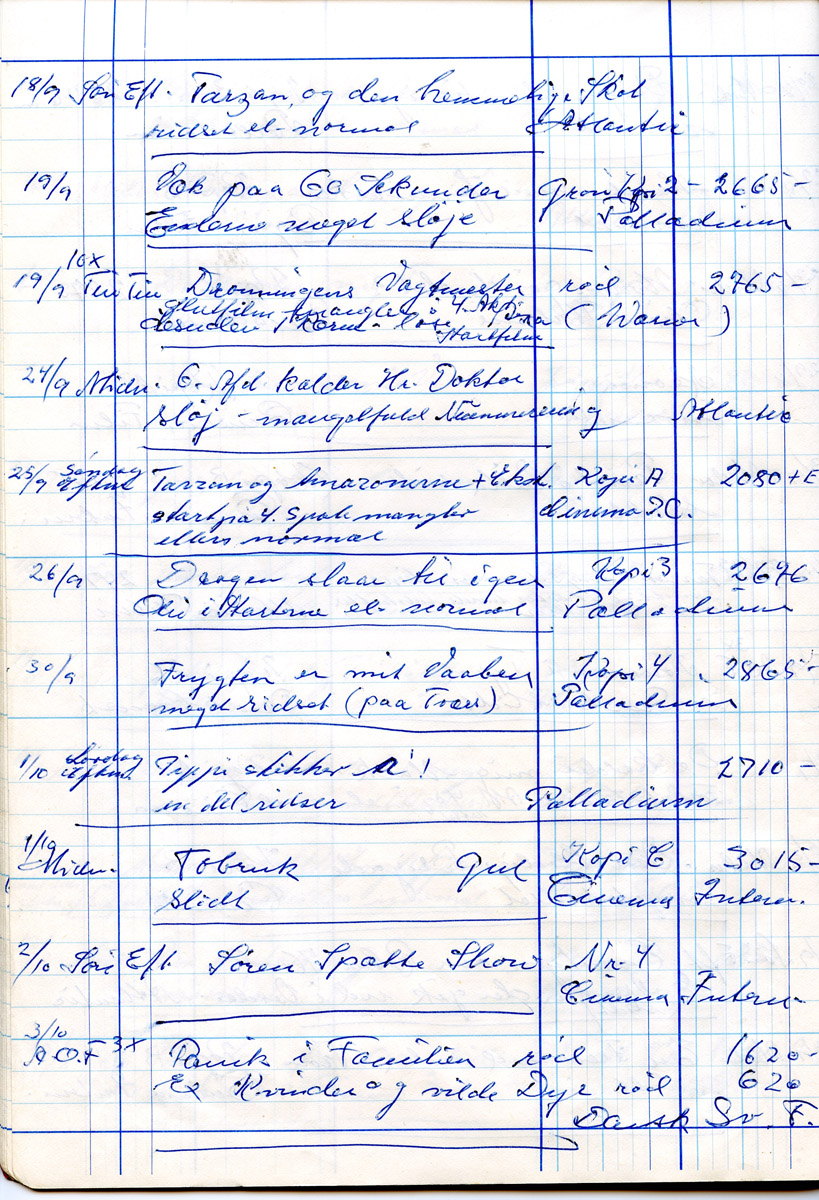 18/9 Søn Eft. Tarzan og den hemmelige Skat
ridset el. normal Atlantic
19/9 Væk paa 60 Sekunder Grøn Kopi 2 - 2665 -
Enderne meget sløje Palladium
16x
19/9 Tin Tin Dronningens Vagtmester rød 2765 -
Slutfilm mangler i 4. Akt
desuden 1 Startfilm (Warner)
24/9 Midn. 6. Afd. kalder Hr. Doktor
sløj - mangelfuld Nummerering Atlantic
25/9 Søndag Eftm. Tarzan og Amazonerne + Ekst. Kopi A 2080 + E
start på 4. Spole mangler Cinema I.C.
ellers normal
26/9 Dragen slaar til igen Kopi 3 2646 -
Olie i Starterne el. normal Palladium
30/9 Frygten er mit Vaaben Kopi 4 2865 -
meget ridset (paa Tværs) Palladium
1/10 Lørdag Eftm. Pippi stikker a'! 2710 -
en del ridser Palladium
1/10
Midn. Tobruk gul Kopi C 3015 -
Slidt Cinema Intern.
2/10 Søn Eft. Søren Spætte Show Nr. 4
Cinema Intern.
3/10
A.O.F 3x Panik i Familien rød 1620 -
Ex Kvinder og vilde Dyr rød 620
Dansk Sv. F.